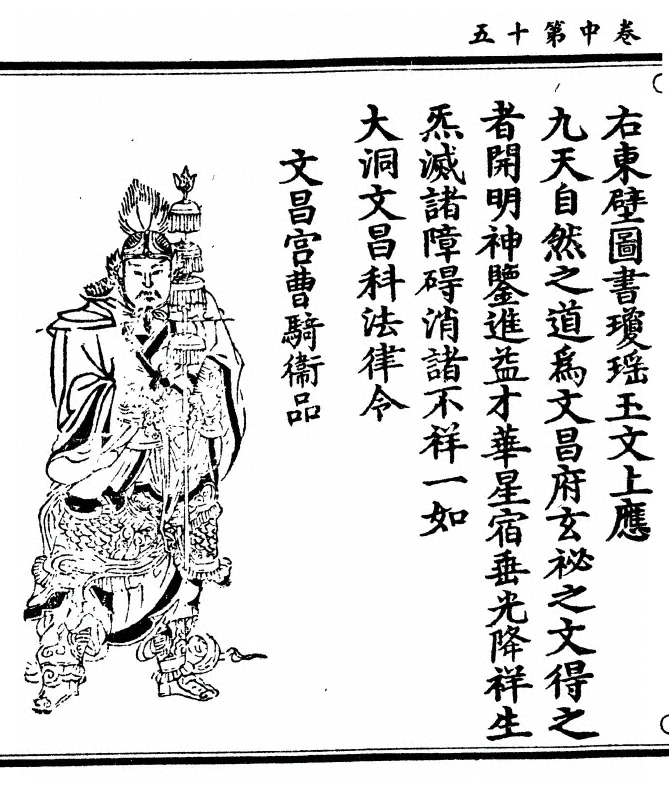 卷中第十五
右東壁圖書瓊瑶玉文上應
九天自然之道爲文昌府玄祕之文得之
者開明神鑒進益才華星宿垂光降祥生
炁滅諸障碍消諸不祥一如
大洞文昌科法律令
文昌宫曹騎衞品